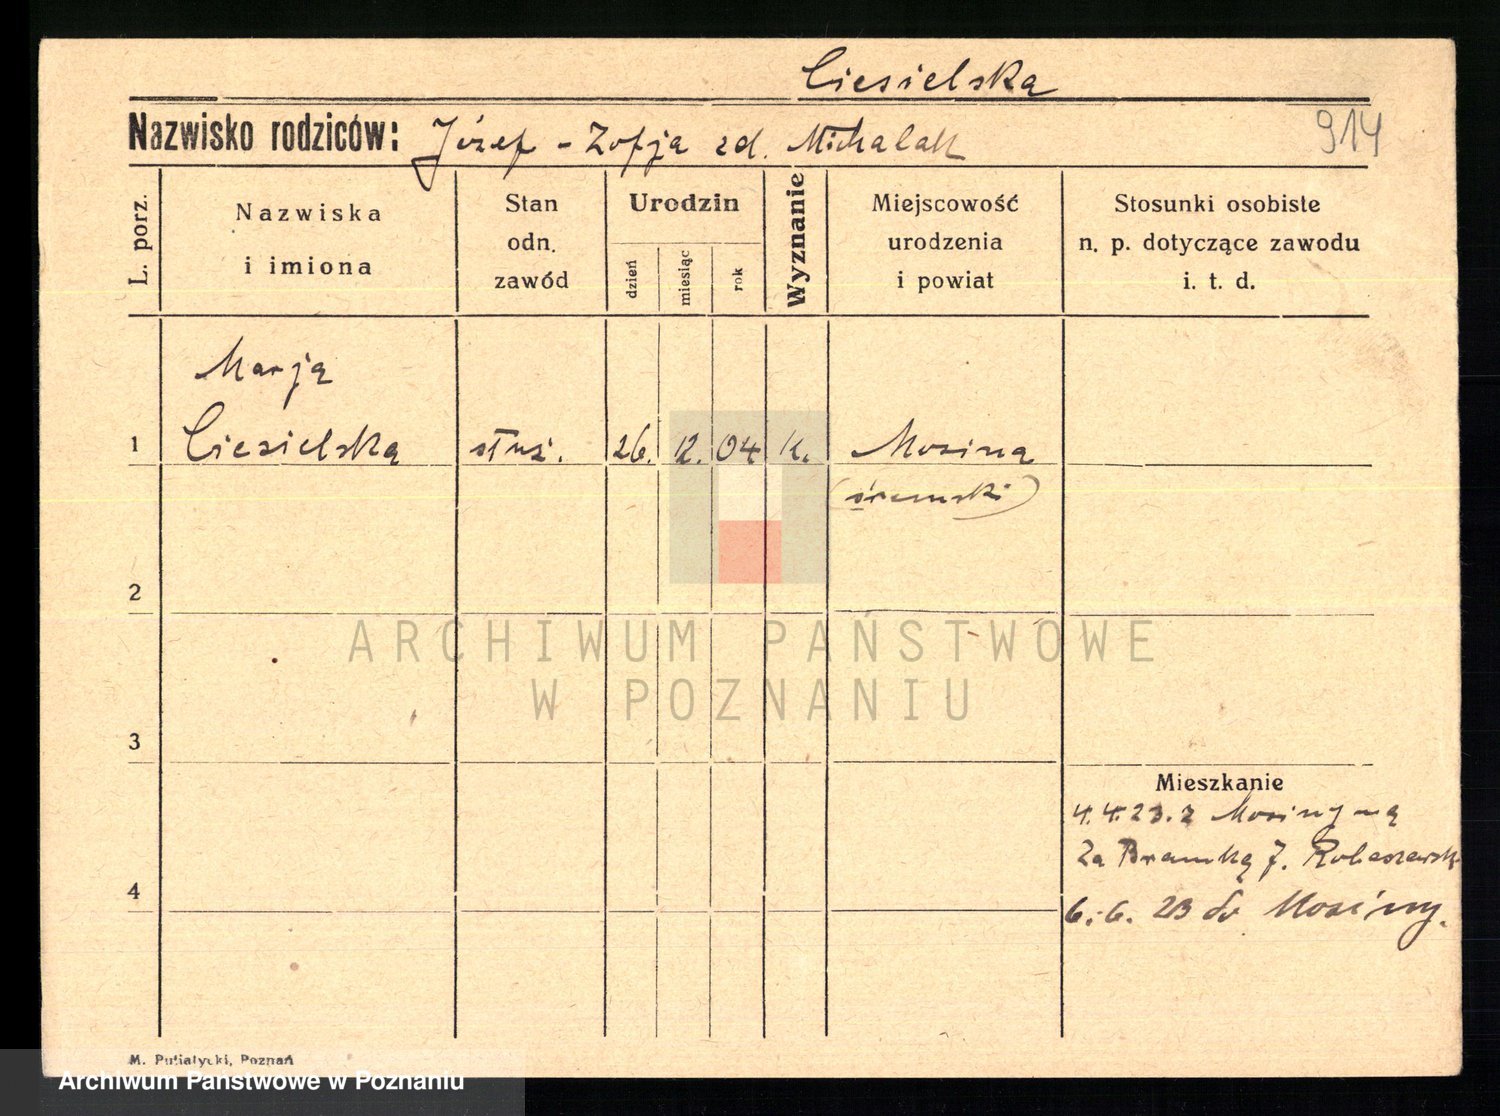 Ciesielska
Nazwisko rodziców: Józef - Zofja zd. Michalak
914
L. porz.
Nazwiska
i imiona
Stan
odn.
zawód
Urodzin
dzień
miesiąc
rok
Wyznanie
Miejscowość
urodzenia
i powiat
Stosunki osobiste
n. p. dotyczące zawodu
i. t. d.
Marja
1 Ciesielska służ. 26. 12. 04 k. Mosina
(śremski)
2
ARCHIWUM PAŃSTWOWE
W POZNANIU
3
Mieszkanie
4. 4. 23. z Mosiny na
Za Bramką 7.
4
6. 6. 23 do Mosiny.
M. Putiatycki, Poznań
Archiwum Państwowe w Poznaniu